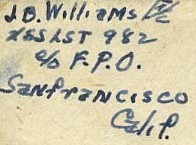 J.B. Williams F/c
USS LST 982
c/o F.P.O.
San Francisco
Calif.